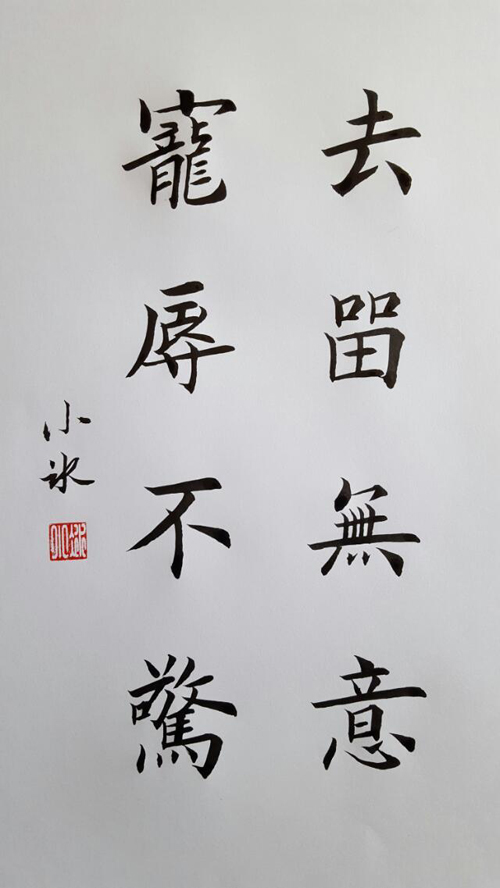 去㽞無意
寵辱不驚
小冰